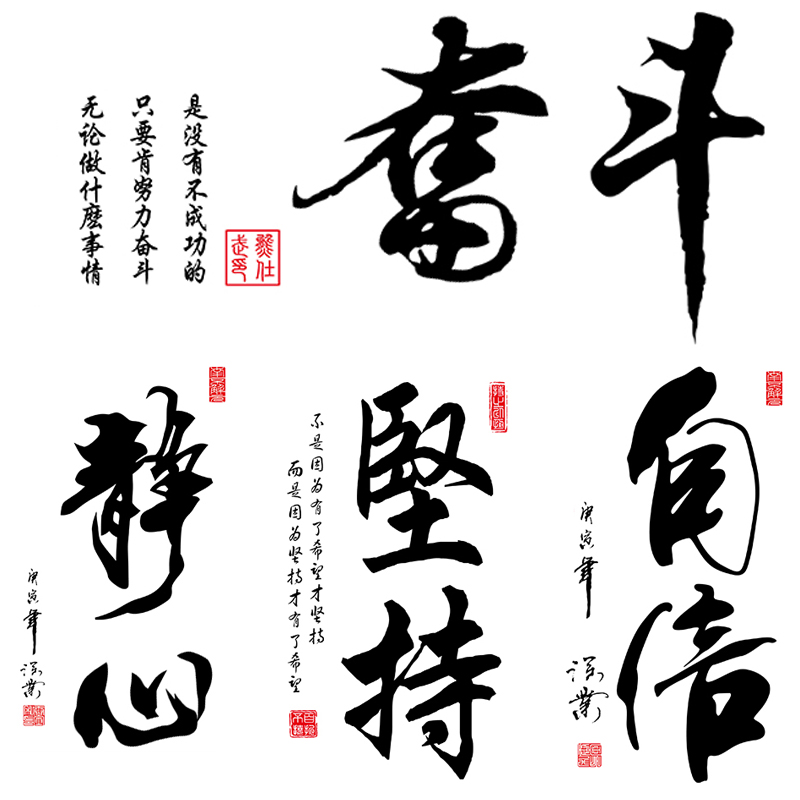 奮斗
无论做什麽事情
只要肯努力奋斗
是没有不成功的
静心
庚寅年
堅持
不是因为有了希望才坚持
而是因为坚持才有了希望
自信
庚寅年